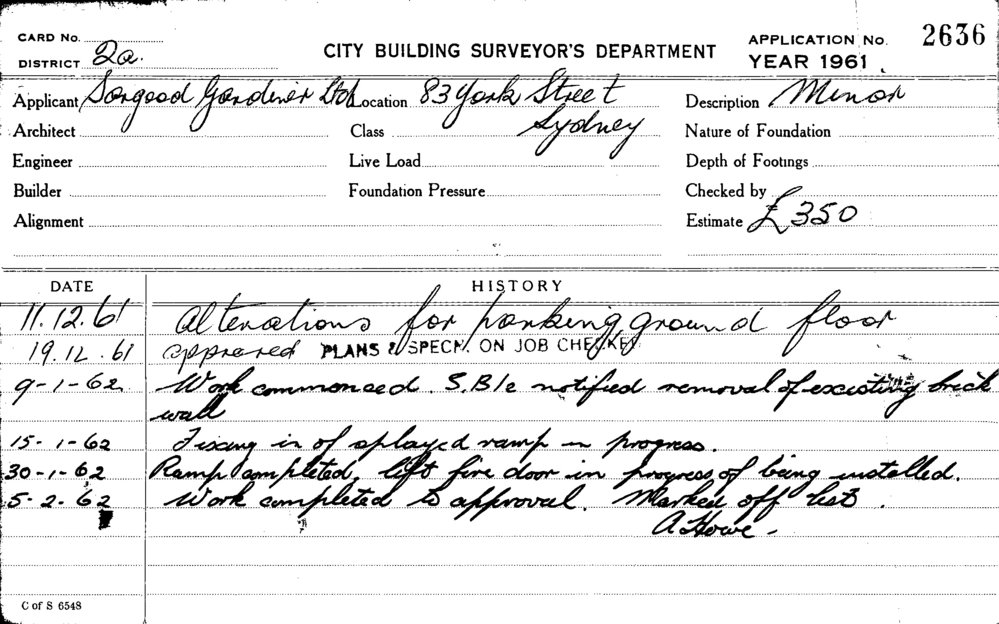 CARD No.
DISTRICT 2a.
CITY BUILDING SURVEYOR'S DEPARTMENT
APPLICATION No. 2636
YEAR 1961
Applicant Sargood Gardiner Ltd Location 83 York Street Description Minor
Architect Class Sydney Nature of Foundation
Engineer Live Load Depth of Footings
Builder Foundation Pressure Checked by
Alignment Estimate £350
DATE HISTORY
11.12.61 Alterations for parking, ground floor
19.12.61 approved PLANS & SPECN. ON JOB CHECKED
9-1-62 Work commenced. S.B/e notified removal of excisting brick
wall
15-1-62 Fixing in of splayed ramp in progress.
30-1-62 Ramp completed, lift fire door in progress of being installed.
5-2-62 Work completed to approval. Marked off list.
A Howe -
C of S 6548